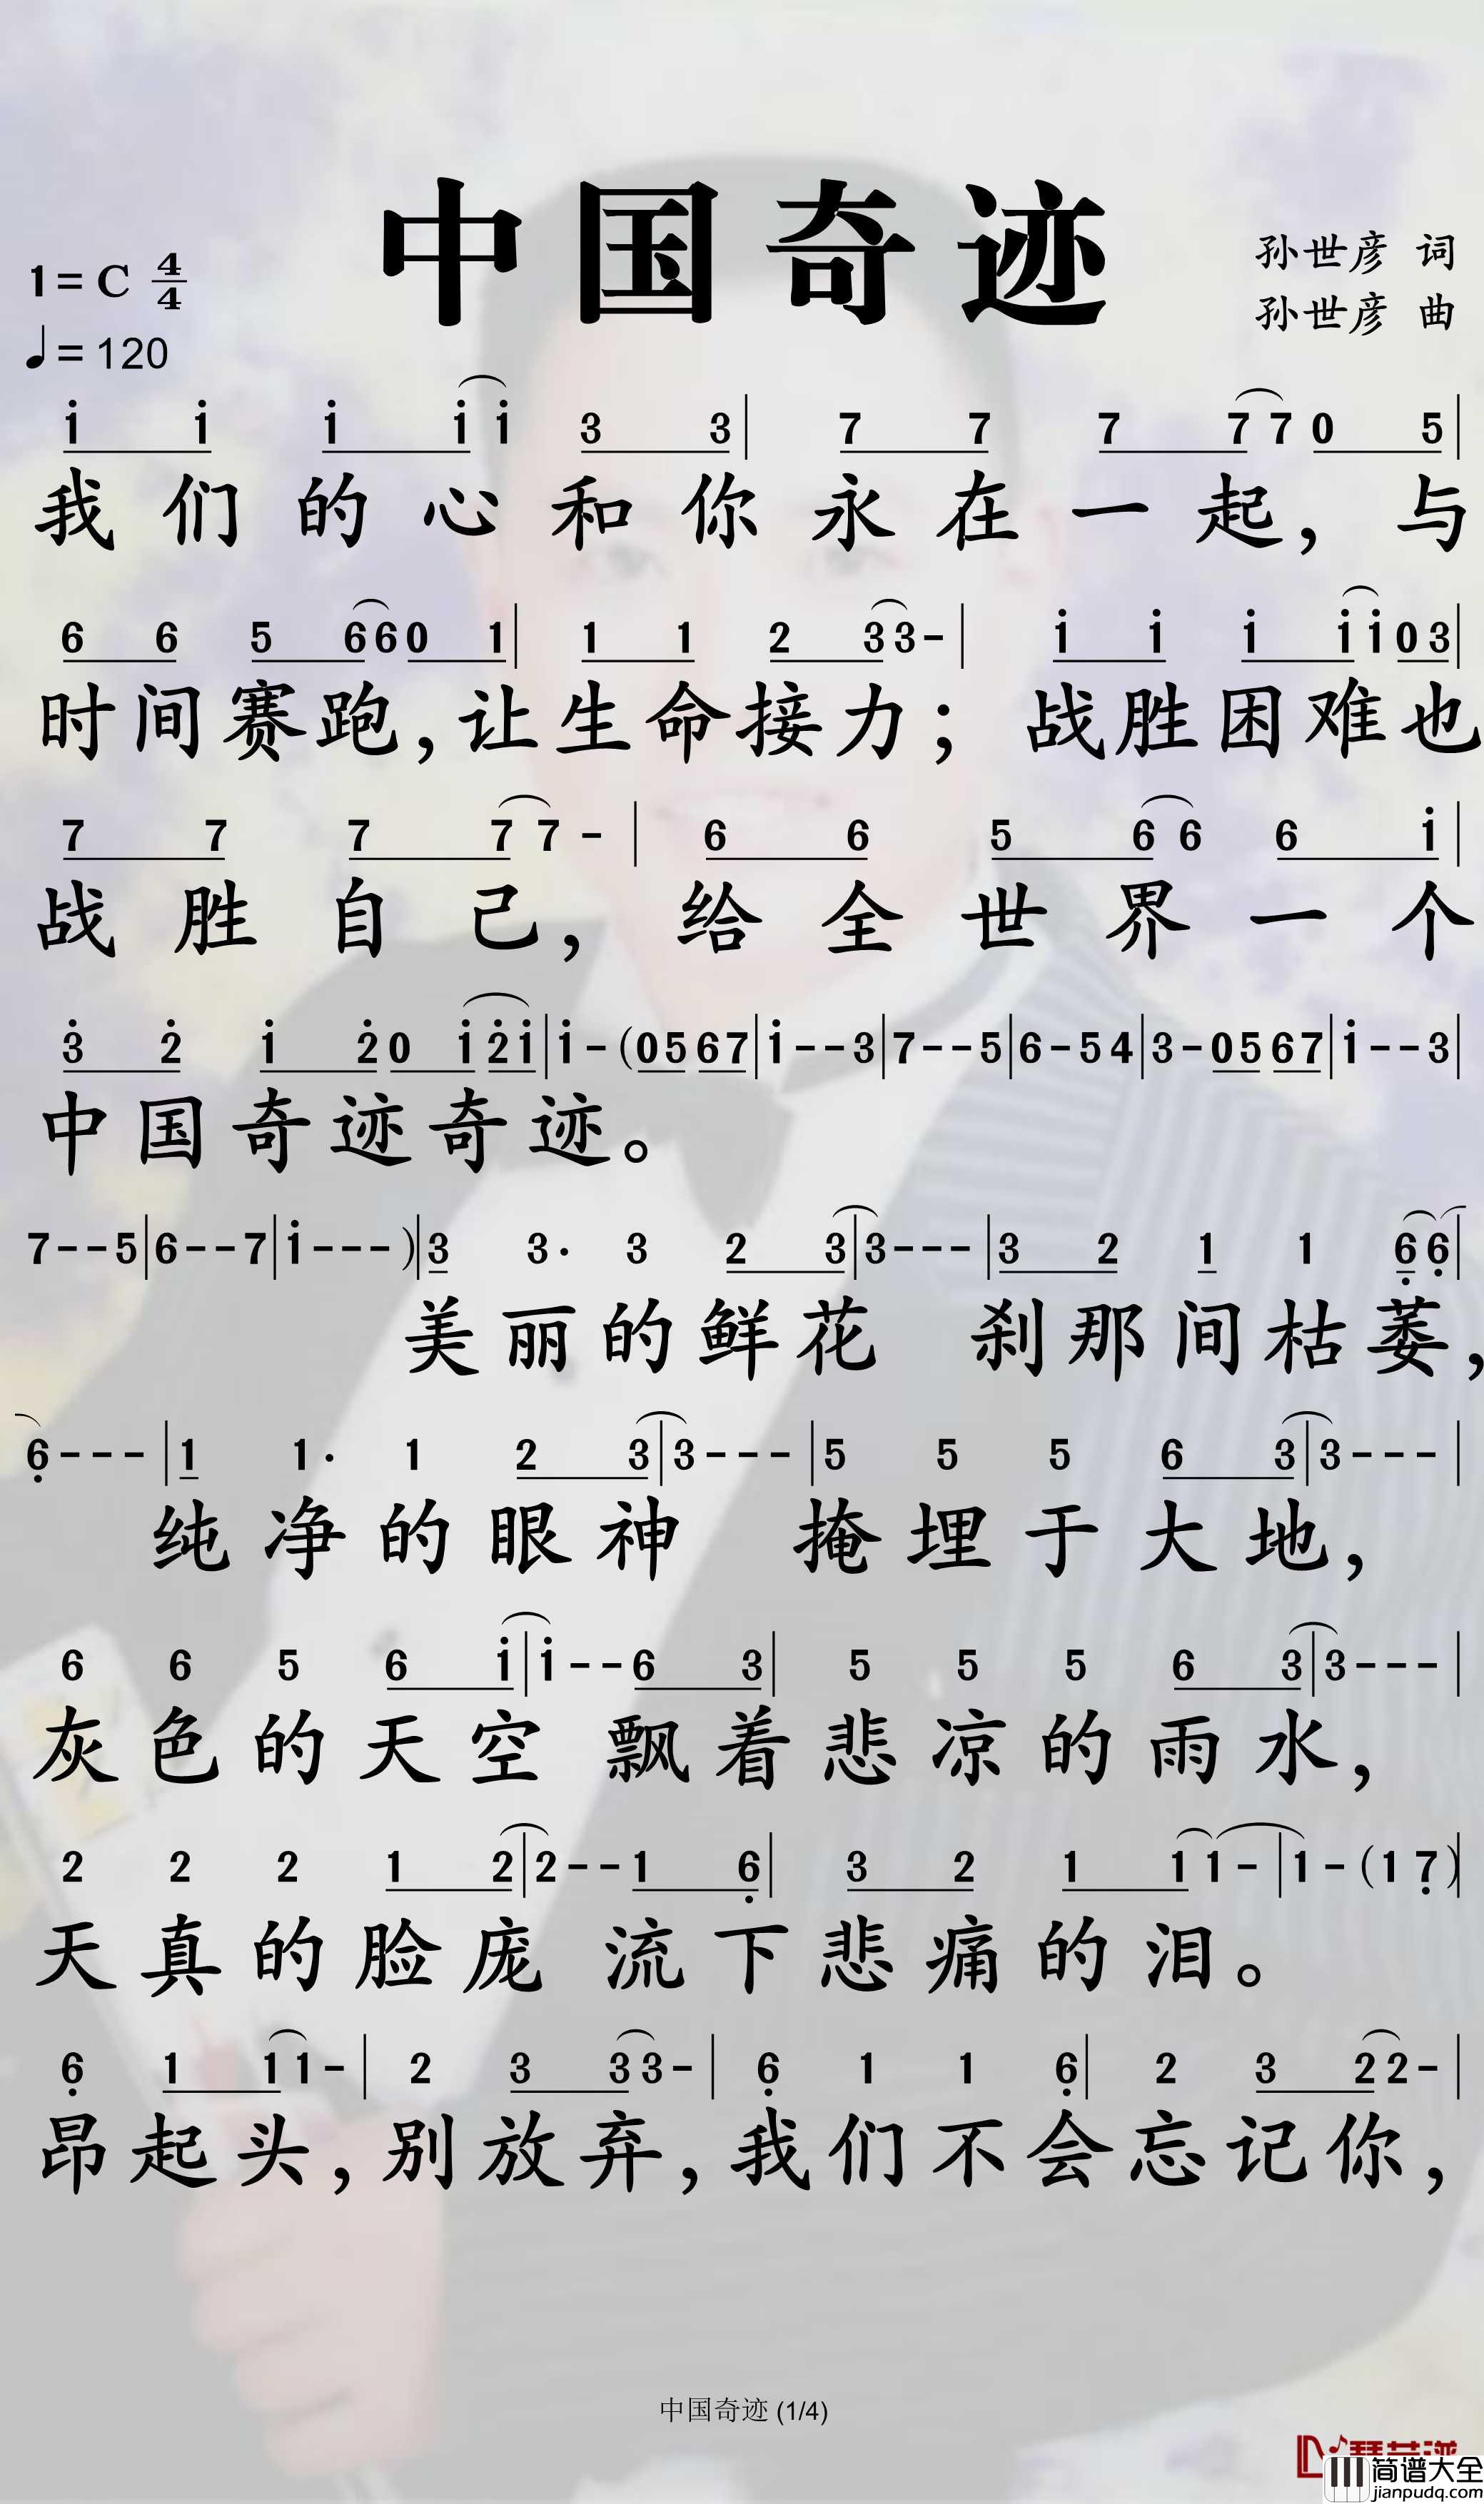 中国奇迹
孙世彦 词
1=C 4/4
孙世彦 曲
♩=120
i i i i i 3 3 | 7 7 7 7 7 0 5 |
我们的心和你永在一起，与
6 6 5 6 6 0 1 | 1 1 2 3 3 - | i i i i i 0 3 |
时间赛跑，让生命接力；战胜困难也
7 7 7 7 7 - | 6 6 5 6 6 6 i |
战胜自己，给全世界一个
3̇ 2̇ i 2̇ 0 i 2̇ i | i - (0 5 6 7 | i - - 3 | 7 - - 5 | 6 - 5 4 | 3 - 0 5 6 7 | i - - 3 |
中国奇迹奇迹。
7 - - 5 | 6 - - 7 | i - - - ) | 3 3· 3 2 3 | 3 - - - | 3 2 1 1 6̣ 6̣ |
美丽的鲜花 刹那间枯萎，
6̣ - - - | 1 1· 1 2 3 | 3 - - - | 5 5 5 6 3 | 3 - - - |
纯净的眼神 掩埋于大地，
6 6 5 6 i | i - - 6 3 | 5 5 5 6 3 | 3 - - - |
灰色的天空 飘着悲凉的雨水，
2 2 2 1 2 | 2 - - 1 6̣ | 3 2 1 1 1 - | 1 - (1 7̣) |
天真的脸庞 流下悲痛的泪。
6̣ 1 1 1 - | 2 3 3 3 - | 6̣ 1 1 6̣ | 2 3 2 2 - |
昂起头，别放弃，我们不会忘记你，
中国奇迹 (1/4)
简谱大全
jianpudq.com